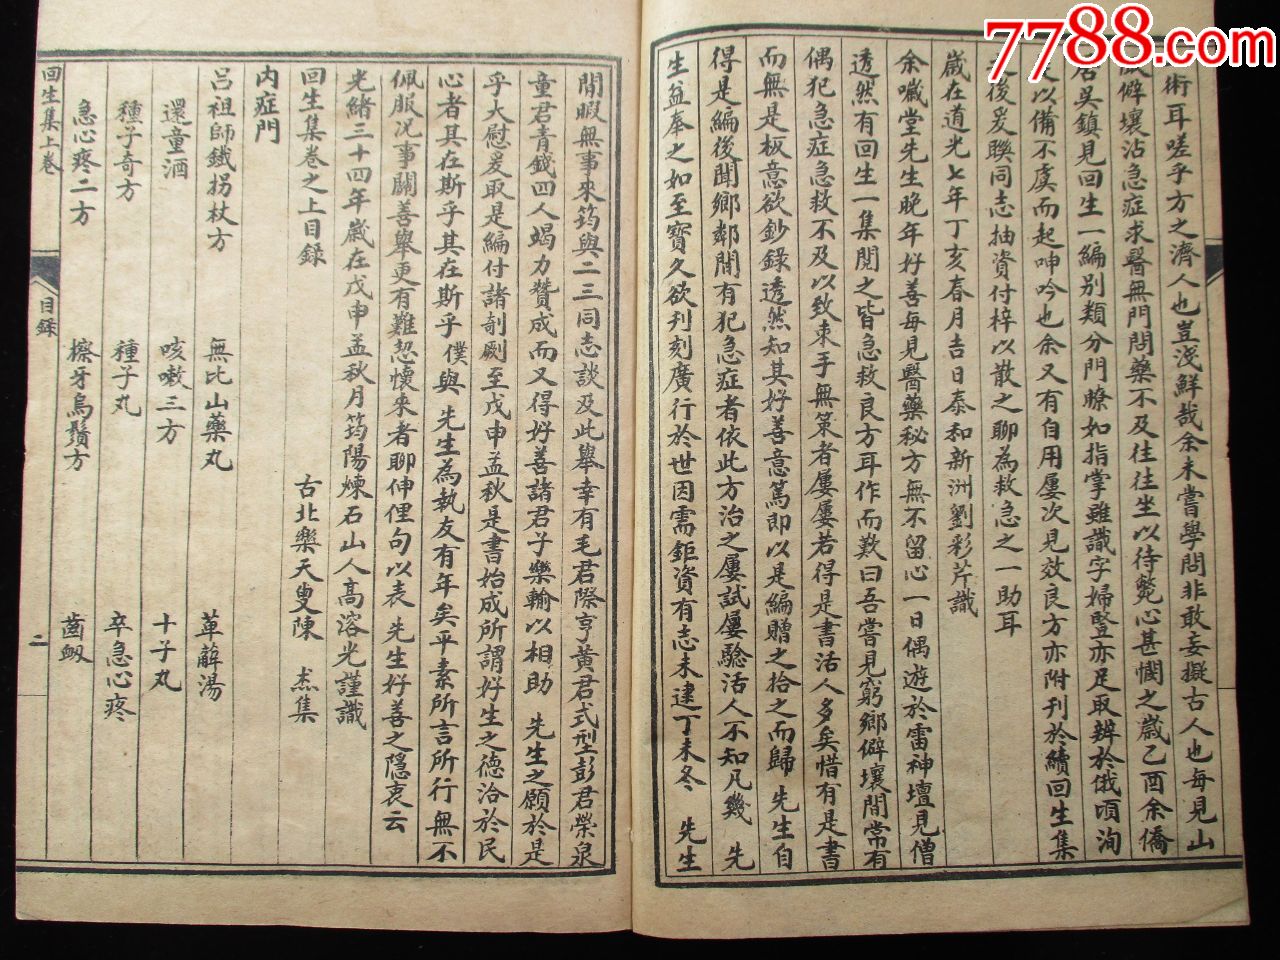 7788.com
術耳嗟乎方之濟人也豈淺鮮哉余未嘗學問非敢妄擬古人也每見山
僻壤沾急症求醫無門問藥不及往往坐以待斃心甚憫之歲乙酉余僑
居吳鎮見回生一編别類分門瞭如指掌雖識字婦豎亦足取辨於俄頃洵
以備不虞而起呻吟也余又有自用屢次見效良方亦附刊於續回生集
後爰聯同志抽資付梓以散之聊為救急之一助耳
歲在道光七年丁亥春月吉日泰和新洲劉彩芹識
余嘬堂先生晚年好善每見醫藥秘方無不留心一日偶遊於雷神壇見僧
透然有回生一集閱之皆急救良方耳作而歎曰吾嘗見窮鄉僻壤間常有
偶犯急症急救不及以致束手無策者屢屢若得是書活人多矣惜有是書
而無是板意欲鈔錄透然知其好善意篤即以是編贈之拾之而歸 先生自
得是編後聞鄉鄰間有犯急症者依此方治之屢試屢驗活人不知凡幾 先
生益奉之如至寶久欲刊刻廣行於世因需鉅資有志未逮丁未冬 先生
閒暇無事來筠與二三同志談及此舉幸有毛君際亨黄君式型彭君榮泉
童君青錢四人竭力贊成而又得好善諸君子樂輸以相助 先生之願於是
乎大慰爰取是編付諸剞劂至戊申孟秋是書始成所謂好生之德洽於民
心者其在斯乎其在斯乎僕與 先生為執友有年矣平素所言所行無不
佩服况事關善舉更有難恝懷來者聊伸俚句以表 先生好善之隱衷云
光緒三十四年歲在戊申孟秋月筠陽煉石山人高溶光謹識
回生集卷之上目録 古北樂天叟陳 杰集
内症門
呂祖師鐵拐杖方 無比山藥丸 萆薢湯
還童酒 咳嗽三方 十子丸
種子奇方 種子丸 卒急心疼
急心疼二方 擦牙烏鬚方 齒衂
回生集上卷 目録 二